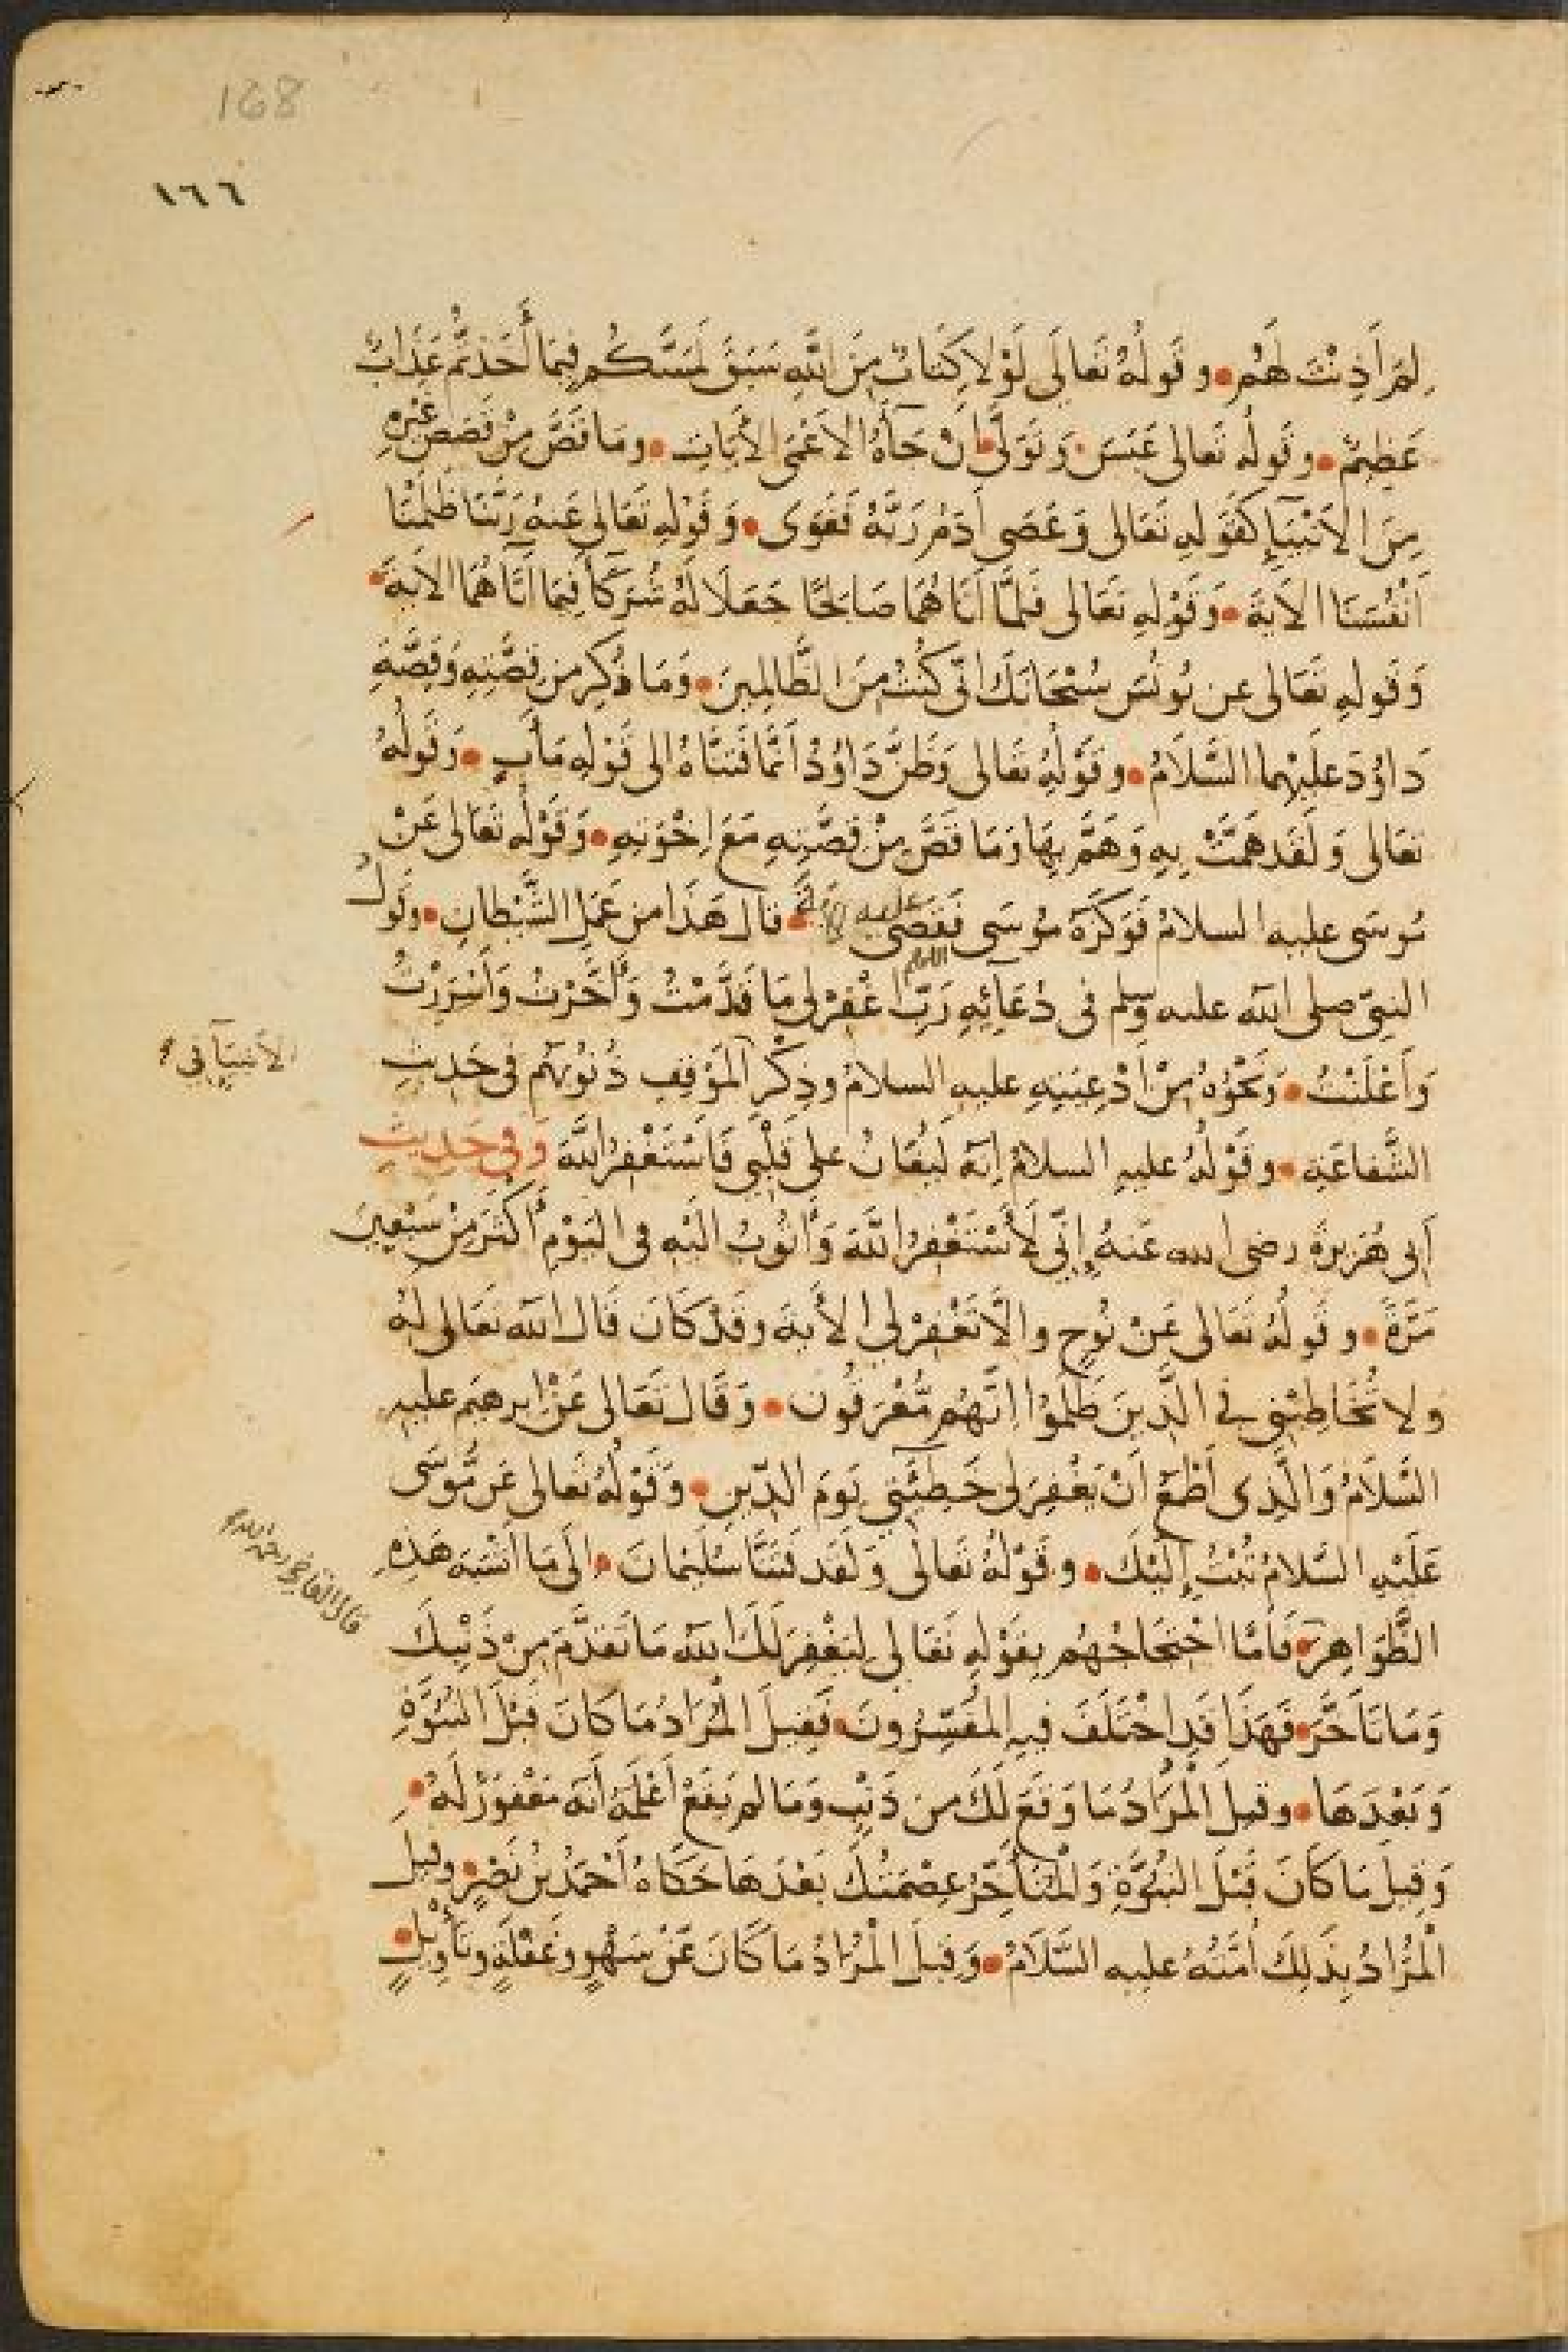 168
١٦٦
لِمَ أَذِنْتَ لَهُمْ • وقَولُهُ تَعالَى لَوْلا كِتَابٌ مِنَ اللَّهِ سَبَقَ لَمَسَّكُم فِيمَا أَخَذتُمْ عَذَابٌ
عَظِيمٌ • وقَولُه تَعالى عَبَسَ وَتَوَلَّى • انْ جَآءَهُ الاعْمَى الآيَات • ومَا قَصَّ مِنْ قَصَصِ غَيْرِهِ
مِنَ الاَنْبِيَاءِ كقَولِهِ تَعَالى وَعَصَى آدَمُ رَبَّهُ فَغَوَى • وَقَوْلِهِ تَعَالى عَنهُ رَبَّنَا ظَلَمْنَا
اَنْفُسَنَا الآيَةَ • وَقَوْلِهِ تَعَالى فَلَمَّا آتَاهُمَا صَالِحًا جَعَلَا لَهُ شُرَكَآءَ فِيمَا آتَاهُمَا الآيَةَ •
وَقَولِهِ تَعَالى عن يُونُسَ سُبْحَانَكَ انّى كُنْتُ مِنَ الظَّالِمِينَ • وَمَا ذُكِرَ مِن قِصَّتِهِ وَقِصَّةِ
دَاوُدَ عَلَيْهِما السَّلَامُ • وقَوْلِهُ تعَالى وَظَنَّ دَاوُدُ اَنَّمَا فَتَنَّاهُ الى قَوْلِهِ مَآبٍ • وَقَولُهُ
تعَالى وَلَقَد هَمَّتْ بِهِ وَهَمَّ بِهَا وَمَا قَصَّ مِنْ قِصَّتِهِ مَعَ اِخْوَتِهِ • وَقَوْلُه تَعَالى عَنْ
مُوسَى عليه السلامُ فَوَكَزَهُ مُوسَى فَقَضَى عليه • قال هَذَا مِن عَمَلِ الشَّيْطانِ • وقَولُ
النبِيّ صلى الله عليه وسلم فى دُعَآئِهِ رَبِّ اغْفِرْ لِى مَا قَدَّمْتُ وَاَخَّرْتُ وَاَسْرَرْتُ
وَاَعْلَنْتُ • وَنَحْوُه مِنْ ادْعِيَتِهِ عليه السلامُ وذِكْرِ المَوْقِفِ ذُنُوبَهُم فى حَدِيثِ
الأنبيآء فى
الشَّفاعَةِ • وقَوْلُهُ عليهِ السلامُ اِنّهُ لَيُغَانُ على قَلْبِى فَاَسْتَغْفِرُ اللَّهَ وَفى حَدِيثِ
أَبِى هُرَيرَةَ رضى الله عَنهُ إِنِّي لَأَسْتَغْفِرُ اللَّهَ وَاَتُوبُ الَيْهِ فى اليَوْمِ اَكثَرَ مِنْ سَبْعِينَ
مَرَّةً • وقَولُهُ تَعَالى عَنْ نُوحٍ والَّا تَغْفِرْ لِي الآيَةَ وقَدْ كَانَ قَالَ الله تَعَالى لَهُ
ولا تُخَاطِبْنِي فِي الَّذِينَ ظَلَمُوا اِنَّهُم مُغْرَقُونَ • وَقَالَ تَعَالى عَنْ ابرهيم عليه
السَّلَامُ وَالَّذِى أَطْمَعُ اَنْ يَغْفِرَ لى خَطِيئَتِي يَومَ الدِّينِ • وَقَوْلُهُ تعَالى عَن مُّوسَى
عَلَيْهِ السَّلامُ تُبْتُ إِلَيْكَ • وقَوْلُهُ تَعَالى وَلَقَد فَتَنَّا سُلَيْمَانَ • الَى مَا اَشْبَهَ هَذِهِ
قال القاضى رحمه الله
الظَّوَاهِرَ • فَاَمَّا احْتِجَاجُهُم بِقَوْلِهِ تَعَالى لِيَغْفِرَ لَكَ اللَّه مَا تَقَدَّمَ مِنْ ذَنْبِكَ
وَمَا تَاَخَّرَ • فَهَذَا قَدِ اخْتَلَفَ فيهِ المُفَسِّرُونَ • فَقِيلَ المُرَادُ مَا كَانَ قَبْلَ النُبُوَّةِ
وَبَعْدَهَا • وقيلَ المُرَادُ مَا وَقَعَ لَكَ من ذَنْبٍ وَمَا لم يَقَعْ اَعْلَمَهُ اَنّهُ مَغْفُورٌ لَهُ •
وَقِيلَ مَا كَانَ قَبْلَ النبُوَّةِ وَالمُتَأَخِّرُ عِصْمَتُكَ بَعْدَهَا حَكَاهُ اَحْمَدُ بنُ نَصْرٍ • وقيل
المُرَادُ بِذَلِكَ اُمَّتُهُ عليه السَّلَامُ • وَقِيلَ المُرَادُ مَا كَانَ عَنْ سَهْوٍ وغَفْلَةٍ وتَأْوِيلٍ •